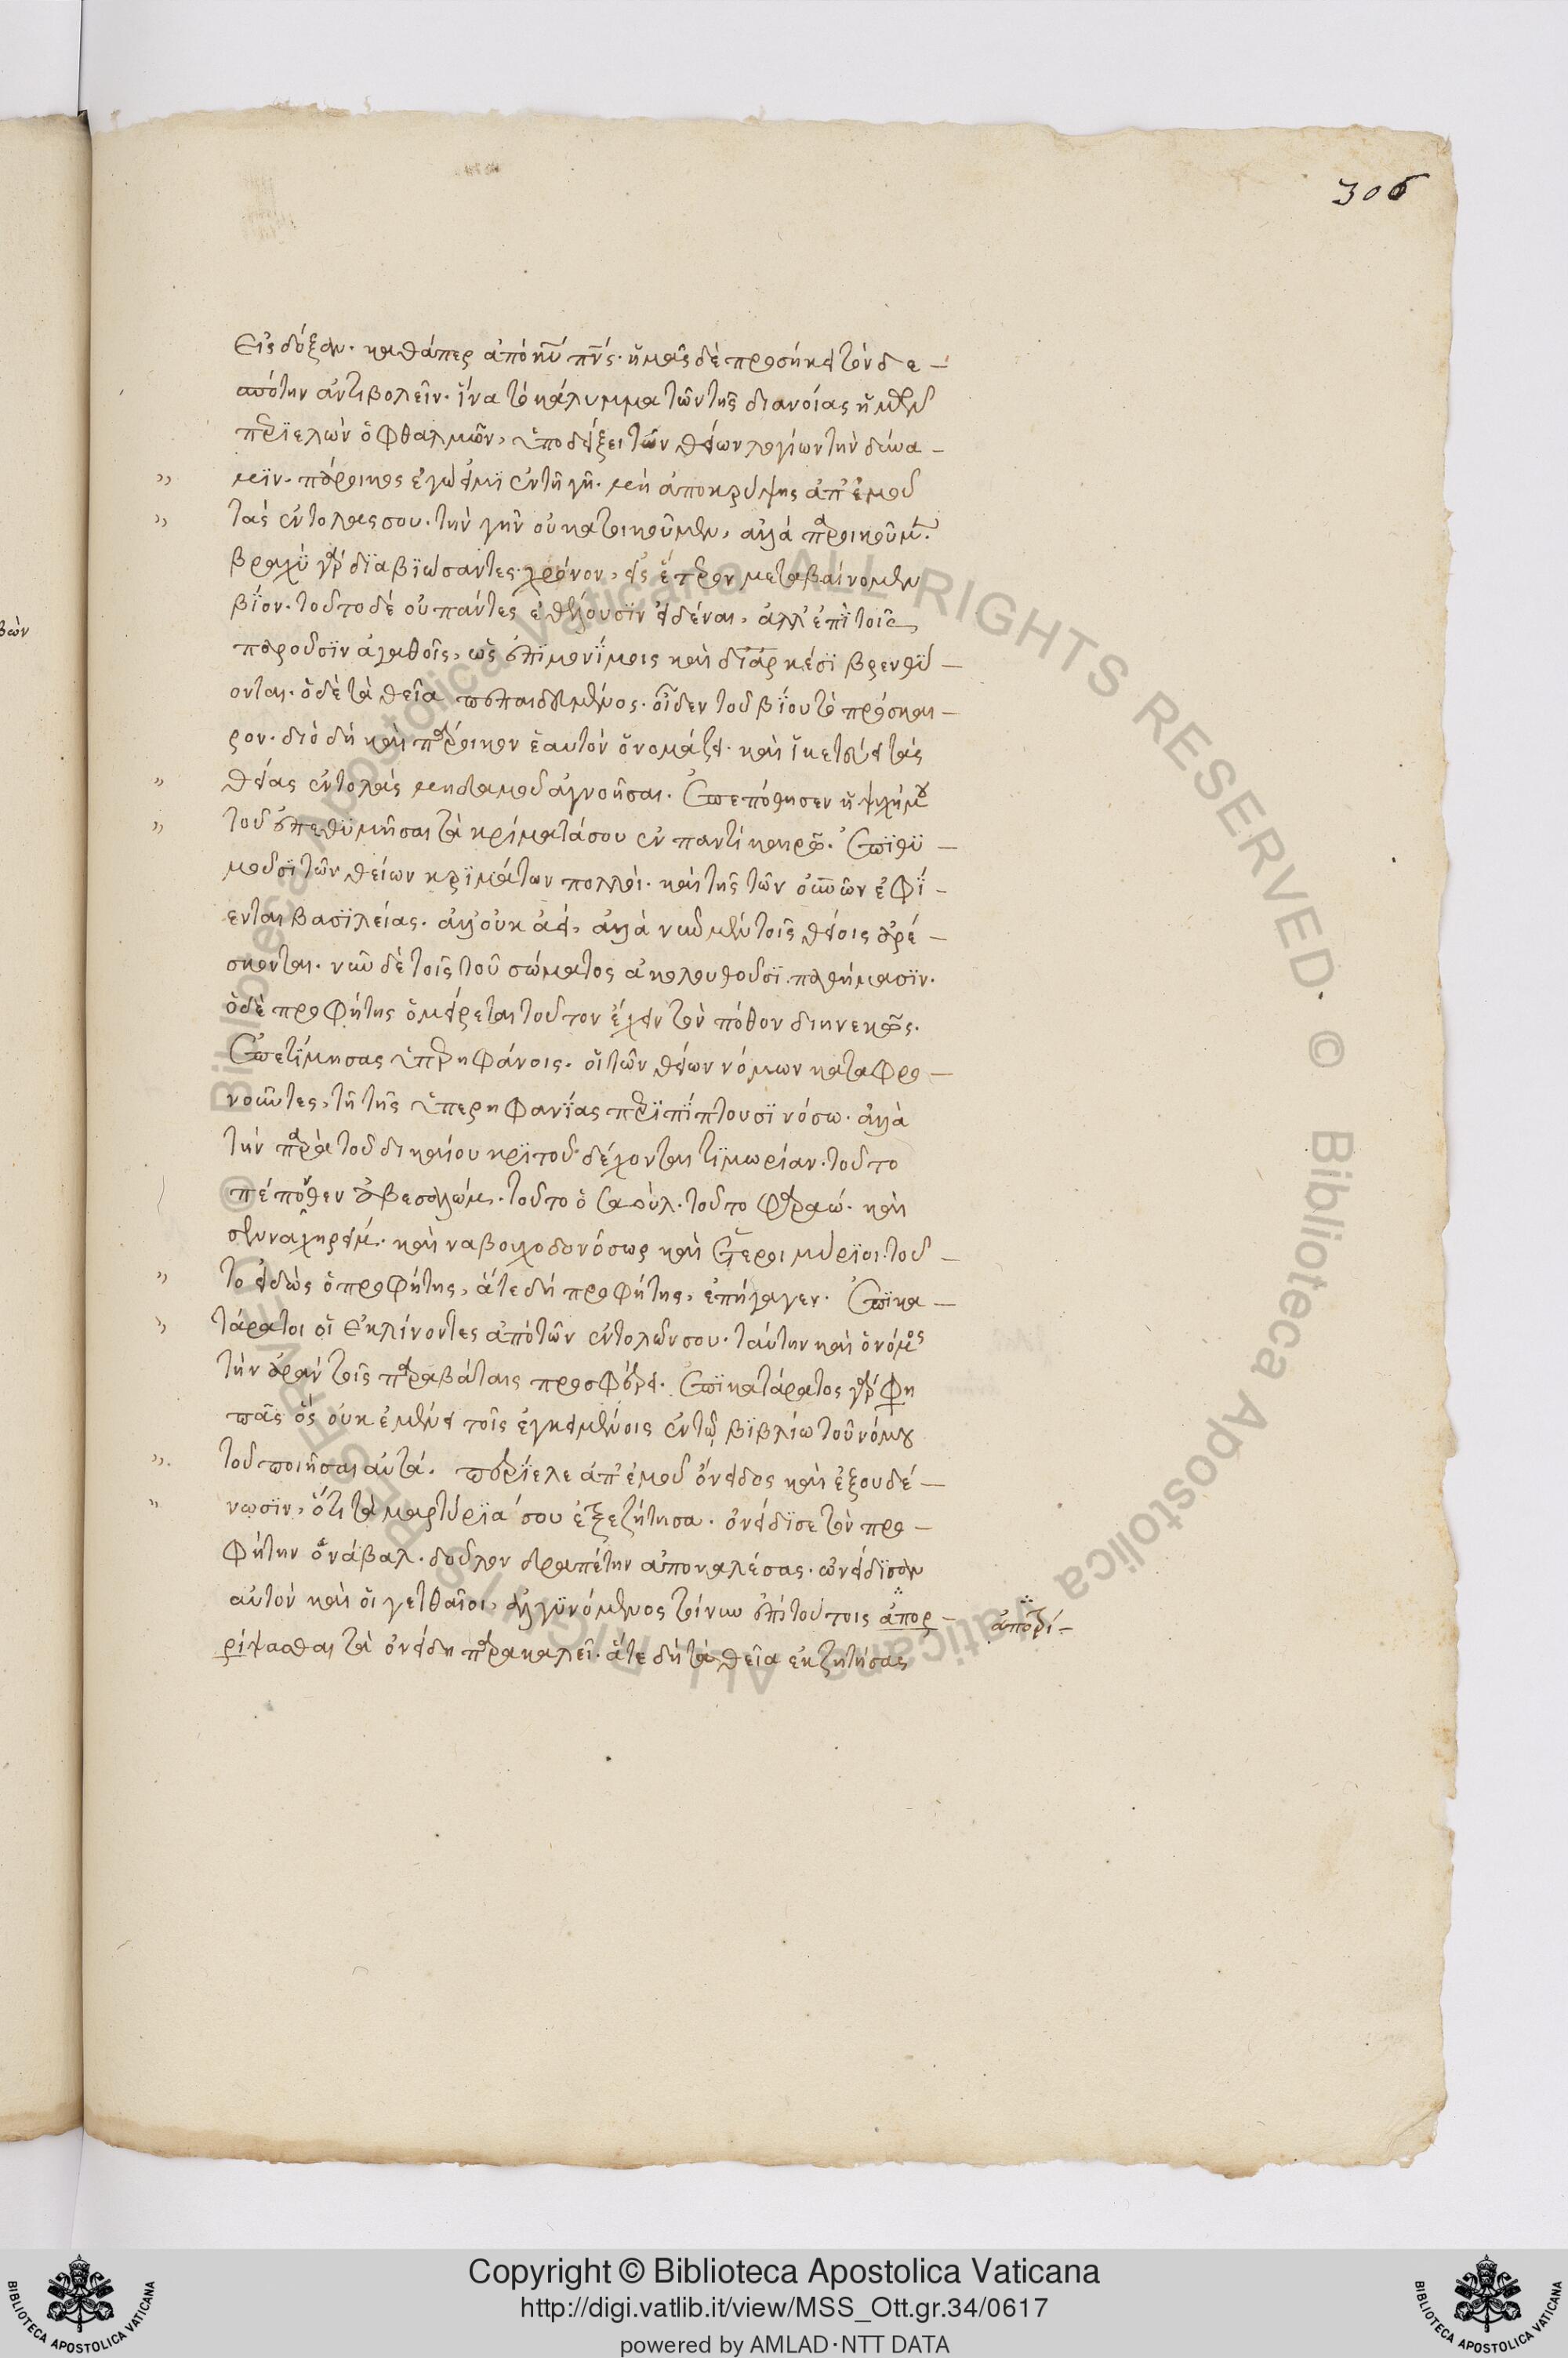 306
εἰς δόξαν. καθάπερ ἀπὸ κῡ πνς. ἡμᾶς δὲ προσήκει τὸν δε-
σπότην ἀντιβολεῖν. ἵνα τὸ κάλυμμα τῶν τῆς διανοίας ἡμῶν
περιελὼν ὀφθαλμῶν, ὑποδείξει τῶν θείων λογίων τὴν δύνα-
μιν. πάροικος ἐγὼ εἰμὶ ἐν τῆ γῆ. μὴ ἀποκρύψης ἀπ' ἐμοῦ
τὰς ἐντολάς σου. τὴν γῆν οὐ κατοικοῦμεν, ἀλλὰ παροικοῦμεν.
βραχὺ γὰρ διαβιώσαντες χρόνον, εἰς ἕτερον μεταβαίνομεν
βίον. τοῦτο δὲ οὐ πάντες ἐθέλουσιν εἰδέναι, ἀλλ' ἐπὶ τοῖς
παροῦσιν ἀγαθοῖς, ὡς ἐπὶ μονίμοις καὶ διαρκέσι βρενθύ-
ονται. ὁ δὲ τὰ θεῖα πεπαιδευμένος. οἶδεν τοῦ βίου τὸ πρόσκαι-
ρον. διὸ δὴ καὶ πάροικον ἑαυτὸν ὀνομάζει. καὶ ἱκετεύει τὰς
θείας ἐντολὰς μηδαμοῦ ἀγνοῆσαι. ἐπεπόθησεν ἡ ψυχή μου
τοῦ ἐπιθυμῆσαι τὰ κρίματά σου ἐν παντὶ καιρῶ. ἐπιθυ-
μοῦσι τῶν θείων κριμάτων πολλοί. καὶ τῆς τῶν οὐνῶν ἐφί-
ενται βασιλείας. ἀλλ' οὐκ ἀεί, ἀλλὰ νῦν μὲν τοῖς θείοις ἀρέ-
σκονται. νῦν δὲ τοῖς τοῦ σώματος ἀκολουθοῦσι παθήμασιν.
ὁ δὲ προφήτης ὁμείρεται τοῦτον ἔχειν τὸν πόθον διηνεκῶς.
ἐπετίμησας ὑπερηφάνοις. οἱ τῶν θείων νόμων καταφρο-
νοῦντες, τῆ τῆς ὑπερηφανίας περιπίπτουσι νόσω. ἀλλὰ
τὴν παρὰ τοῦ δικαίου κριτοῦ δέχονται τιμωρίαν. τοῦτο
πέπονθεν ἀβεσαλώμ. τοῦτο ὁ σαούλ. τοῦτο φαραώ. καὶ
σενναχηρείμ. καὶ ναβουχοδονόσωρ καὶ ἕτεροι μύριοι. τοῦ-
το εἰδὼς ὁ προφήτης, ἅτε δὴ προφήτης, ἐπήγαγεν. ἐπικα-
τάρατοι οἱ ἐκκλίνοντες ἀπὸ τῶν ἐντολῶν σου. ταύτην καὶ ὁ νόμος
τὴν ἀρὰν τοῖς παραβάταις προσφέρει. ἐπικατάρατος γάρ φη
πᾶς ὃς οὐκ ἐμμένει τοῖς ἐγκειμένοις ἐν τῶ βιβλίω τοῦ νόμου
τοῦ ποιῆσαι αὐτά. περίελε ἀπ' ἐμοῦ ὄνειδος καὶ ἐξουδέ-
νωσιν, ὅτι τὰ μαρτύριά σου ἐξεζήτησα. ὀνείδισε τὸν προ-
φήτην ὁ νάβαλ. δοῦλον δραπέτην ἀποκαλέσας. ὠνείδισαν
αὐτὸν καὶ οἱ γετθαῖοι, αἰσχυνόμενος τοίνυν ἐπὶ τούτοις ἀπορ-
ρίψασθαι τὰ ὀνείδη παρακαλεῖ. ἅτε δὴ τὰ θεῖα ἐκζητήσας
ἀπορρί-
βὼν
Copyright © Biblioteca Apostolica Vaticana
http://digi.vatlib.it/view/MSS_Ott.gr.34/0617
powered by AMLAD·NTT DATA